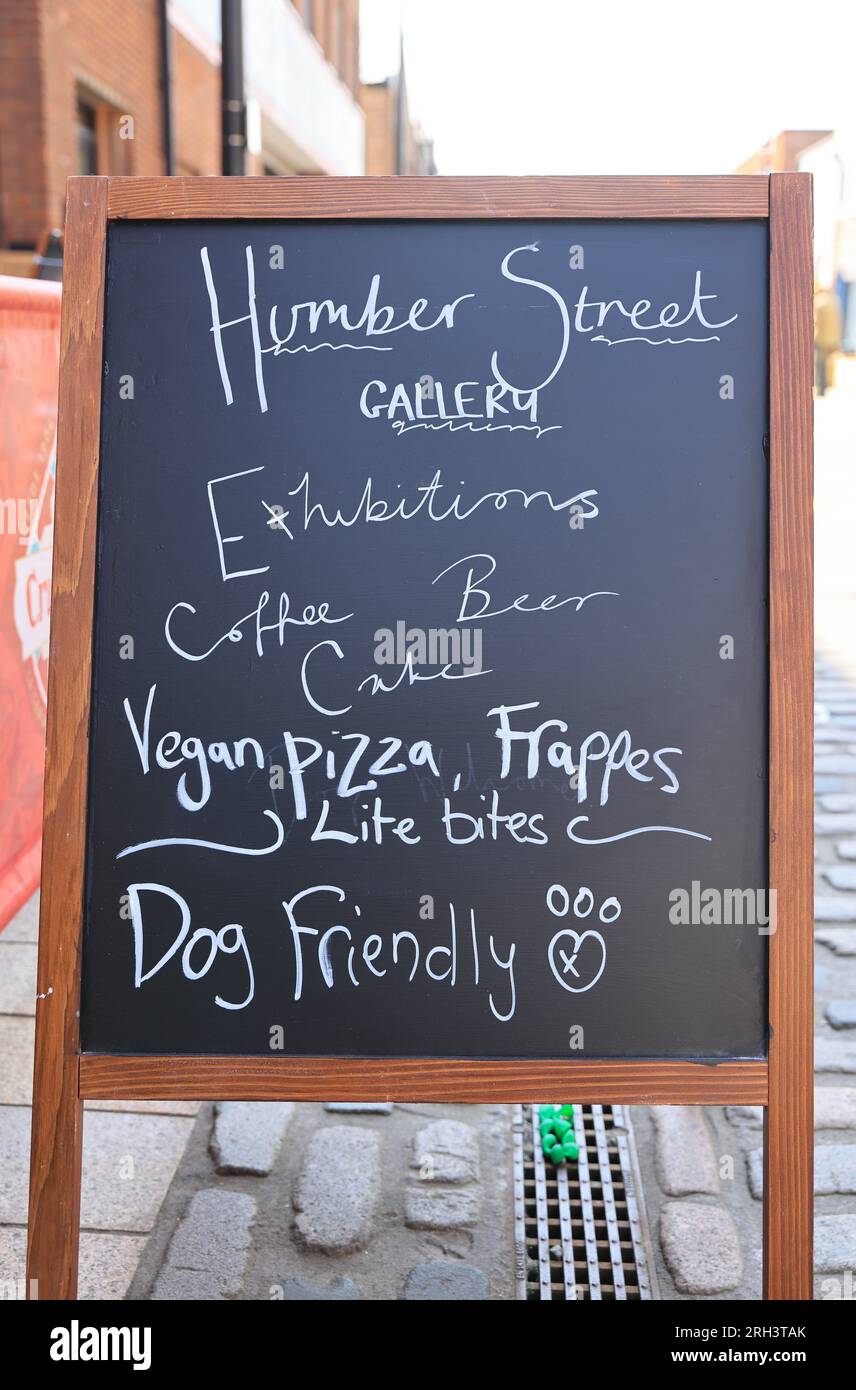 Humber Street
GALLERY
gallery
Exhibitions
Coffee Beer
Cake
Vegan pizza, Frappes
Lite bites
Dog Friendly
Cr
alamy
alamy
Image ID: 2RH3TAK
www.alamy.com